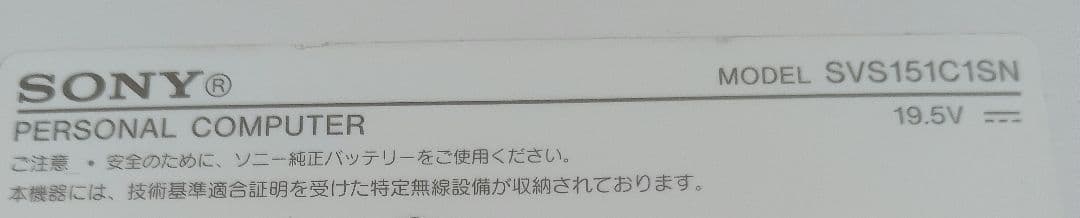 SONY®
MODEL SVS151C1SN
PERSONAL COMPUTER
19.5V ⎓
ご注意 ・ 安全のために、ソニー純正バッテリーをご使用ください。
本機器には、技術基準適合証明を受けた特定無線設備が収納されております。